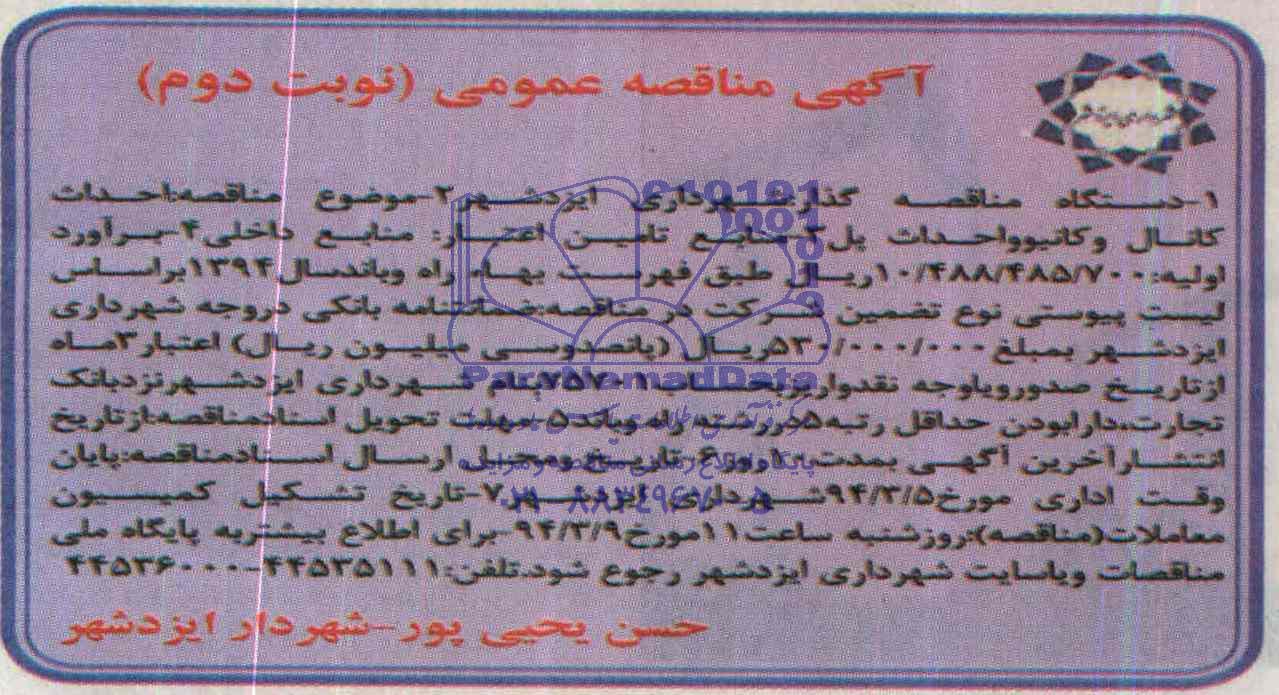 آگهی مناقصه عمومی (نوبت دوم)
شهرداری ایزدشهر
۱-دستگاه مناقصه گذار:شهرداری ایزدشهر۲-موضوع مناقصه:احداث
کانال وکانیوواحداث پل۳-منابع تامین اعتبار: منابع داخلی۴-برآورد
اولیه:۱۰/۴۸۸/۴۸۵/۷۰۰ریال طبق فهرست بهاء راه وباندسال۱۳۹۴براساس
لیست پیوستی نوع تضمین شرکت در مناقصه:ضمانتنامه بانکی دروجه شهرداری
ایزدشهر بمبلغ۵۳۰/۰۰۰/۰۰۰ریال (پانصدوسی میلیون ریال) اعتبار۳ماه
ازتاریخ صدورویاوجه نقدواریزبحساب بنام شهرداری ایزدشهرنزدبانک
تجارت،دارابودن حداقل رتبه۵دررشته راه وباند۵-مهلت تحویل اسنادمناقصه:ازتاریخ
انتشارآخرین آگهی بمدت۱۰روز۶-تاریخ ومحل ارسال اسنادمناقصه:پایان
وقت اداری مورخ۹۴/۳/۵شهرداری ایزدشهر۷-تاریخ تشکیل کمیسیون
معاملات(مناقصه):روزشنبه ساعت۱۱مورخ۹۴/۳/۹-برای اطلاع بیشتربه پایگاه ملی
مناقصات ویاسایت شهرداری ایزدشهر رجوع شود.تلفن:۴۴۵۳۵۱۱۱-۴۴۵۳۶۰۰۰
حسن یحیی پور-شهردار ایزدشهر
ParsNamadData
پایگاه اطلاع رسانی مناقصه و مزایده